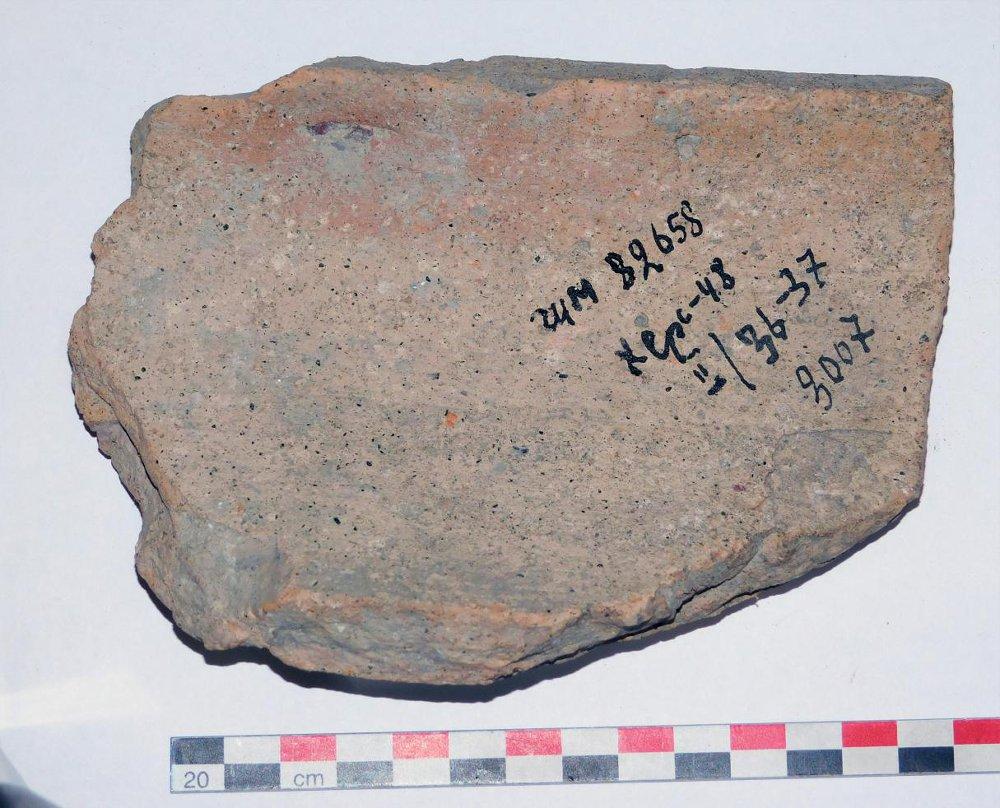 гим 82658
херс-48
II/36-37
3007
20 cm